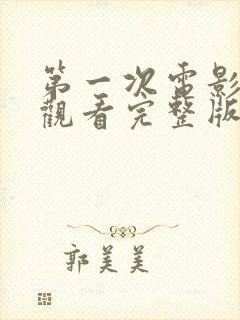 第一次電影
觀看完整版
郭美美